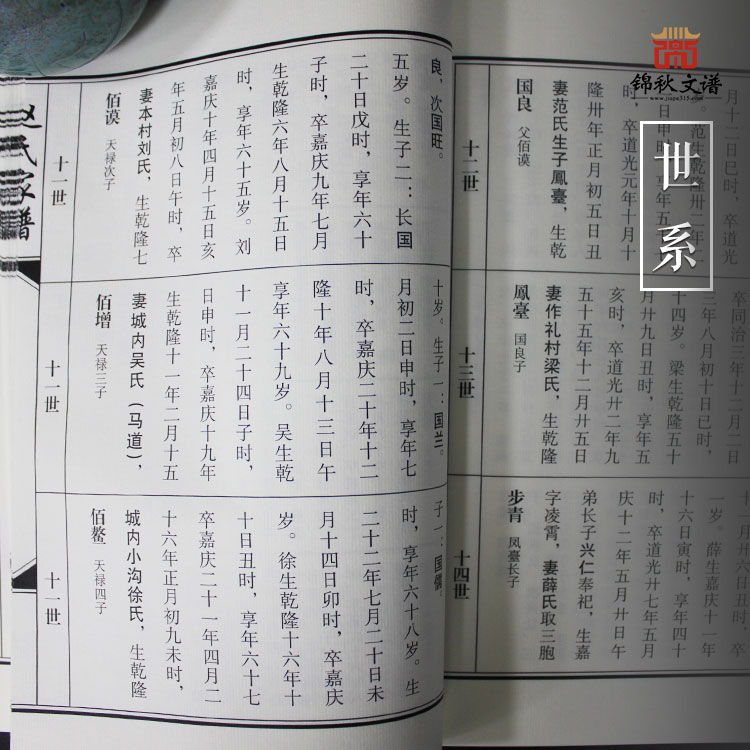 锦秋文谱
www.jiapu315.com
世系
赵氏家谱
十一世
佰谟 天禄次子
妻本村刘氏，生乾隆七
年五月初八日午时，卒
嘉庆十年四月十五日亥
时，享年六十五岁。刘
生乾隆六年八月十五日
子时，卒嘉庆九年七月
二十日戊时，享年六十
五岁。生子二：长国
良，次国旺。
十一世
佰增 天禄三子
妻城内吴氏（马道），
生乾隆十一年二月十五
日申时，卒嘉庆十九年
十一月二十四日子时，
享年六十九岁。吴生乾
隆十年八月十三日午
时，卒嘉庆二十年十二
月初二日申时，享年七
十岁。生子一：国兰。
十一世
佰鳌 天禄四子
城内小沟徐氏，生乾隆
十六年正月初九未时，
卒嘉庆二十一年四月二
十日丑时，享年六十七
岁。徐生乾隆十六年十
月十四日卯时，卒嘉庆
二十二年七月二十日未
时，享年六十八岁。生
子一：国儒。
十二世
国良 父佰谟
妻范氏生子鳳臺，生乾
隆卅年正月初五日丑
时，卒道光元年十月十
日申时
范生乾隆卅
月十二日巳时，卒道光
十三世
鳳臺 国良子
妻作礼村梁氏，生乾隆
五十五年十二月廿五日
亥时，卒道光廿二年九
月廿九日丑时，享年五
十四岁。梁生乾隆五十
三年八月初十日巳时，
卒同治三年十二月二日
十四世
步青 凤臺长子
字凌霄，妻薛氏取三胞
弟长子兴仁奉祀，生嘉
庆十二年五月廿日午
时，卒道光廿七年五月
十六日寅时，享年四十
一岁。薛生嘉庆十一年
月六日丑时，卒